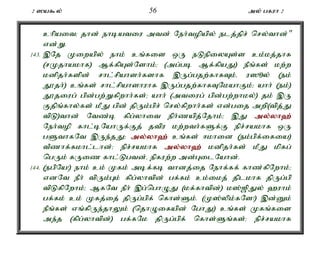 2 ஸயகூல் 56 அல் பகரா 2
உரியவை; தான் நாடியவரை அவன் நேர்வழியில் நடத்திச் செல்வான்"
என்று.
143. இதே முறையில் நாம் உங்களை ஒரு நடுநிலையுள்ள உம்மத்தாக
(சமுதாயமாக) ஆக்கியுள்ளோம்; (அப்படி ஆக்கியது) நீங்கள் மற்ற
மனிதர்களின் சாட்சியாளர்களாக இருப்பதற்காகவும், ரஸூல் (நம்
தூதர்) உங்கள் சாட்சியாளராக இருப்பதற்காகவுமேயாகும்; யார் (நம்)
தூதரைப் பின்பற்றுகிறார்கள்; யார் (அவரைப் பின்பற்றாமல்) தம் இரு
குதிங்கால்கள் மீது பின் திரும்பிச் செல்கிறார்கள் என்பதை அறி(வித்து
விடு)வான் வேண்டி கிப்லாவை நிர்ணயித்தோம்; இது அல்லாஹ்
நேர்வழி காட்டியோருக்குத் தவிர மற்றவர்களுக்கு நிச்சயமாக ஒரு
பளுவாகவே இருந்தது; அல்லாஹ் உங்கள் ஈமானை (நம்பிக்கையை)
வீணாக்கமாட்டான்; நிச்சயமாக அல்லாஹ் மனிதர்கள் மீது மிகப்
பெரும் கருணை காட்டுபவன்; நிகரற்ற அன்புடையோன்.
144. (நபியே!) நாம் உம் முகம் அடிக்கடி வானத்தை நோக்கக் காண்கிறோம்;
எனவே நீர் விரும்பும் கிப்லாவின் பக்கம் உம்மைத் திடமாக திருப்பி
விடுகிறோம்; ஆகவே நீர் இப்பொழுது (மக்காவின்) மஸ்ஜிதுல் ஹராம்
பக்கம் உம் முகத்தைத் திருப்பிக் கொள்ளும். (முஸ்லிம்களே!) இன்னும்
நீங்கள் எங்கிருந்தாலும் (தொழுகையின் போது) உங்கள் முகங்களை
அந்த (கிப்லாவின்) பக்கமே திருப்பிக் கொள்ளுங்கள்; நிச்சயமாக